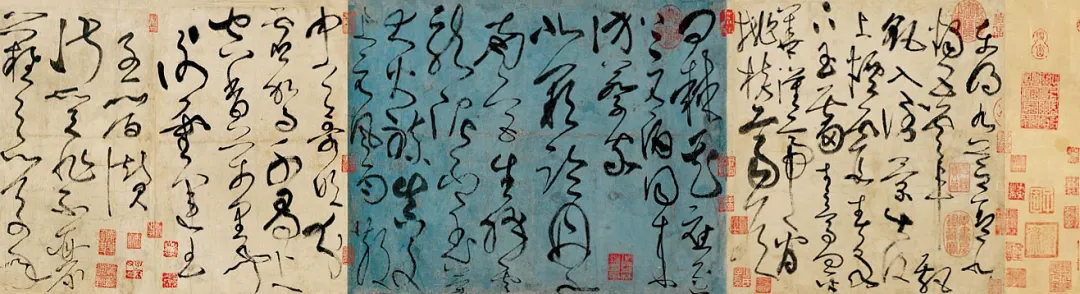 東明九芝蓋北
燭五雲車飄
飖入倒景出沒
上煙霞春泉
下玉霤青鳥向金
華漢帝看
桃核齊侯
問棘花應逐
上元酒同來
訪蔡家
北闕臨丹水
南宮生絳雲
龍泥印玉簡
大火鍊真文
上元風雨散
中天哥吹分
虛駕千尋上
空香萬里聞
謝靈運王
子晉讚
淑質非不麗
難以之百年